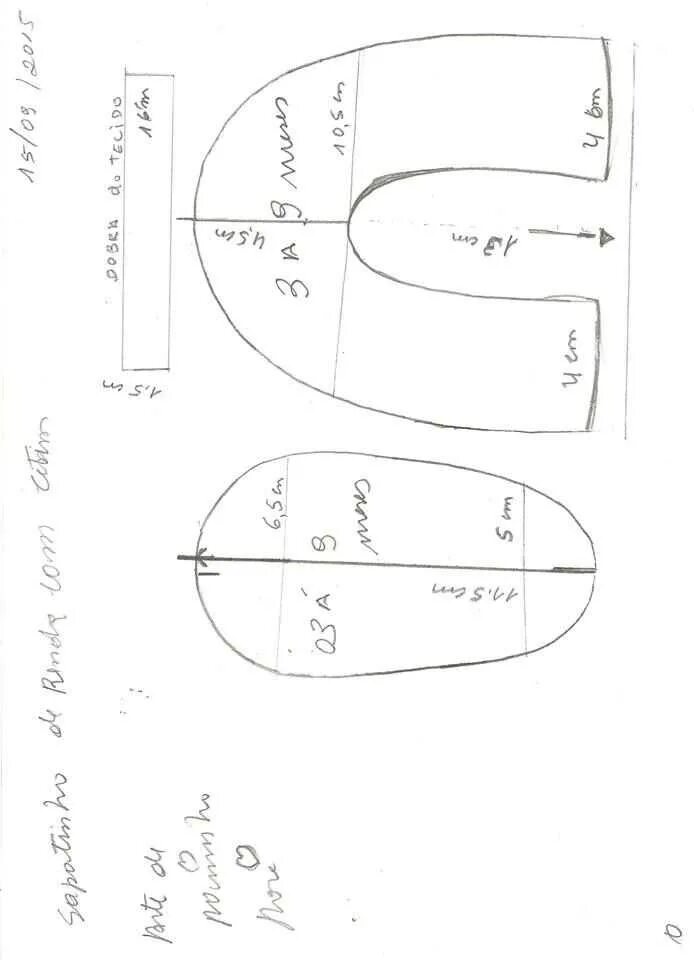 Sapatinho de Renda com
15/09/2015
DOBRA do TECIDO
16cm
1.5cm
03 Á 9
meses
6,5cm
11.5cm
5 cm
3 A 9 meses
4,5cm
10,5cm
cm
4 cm
4 cm
de
10